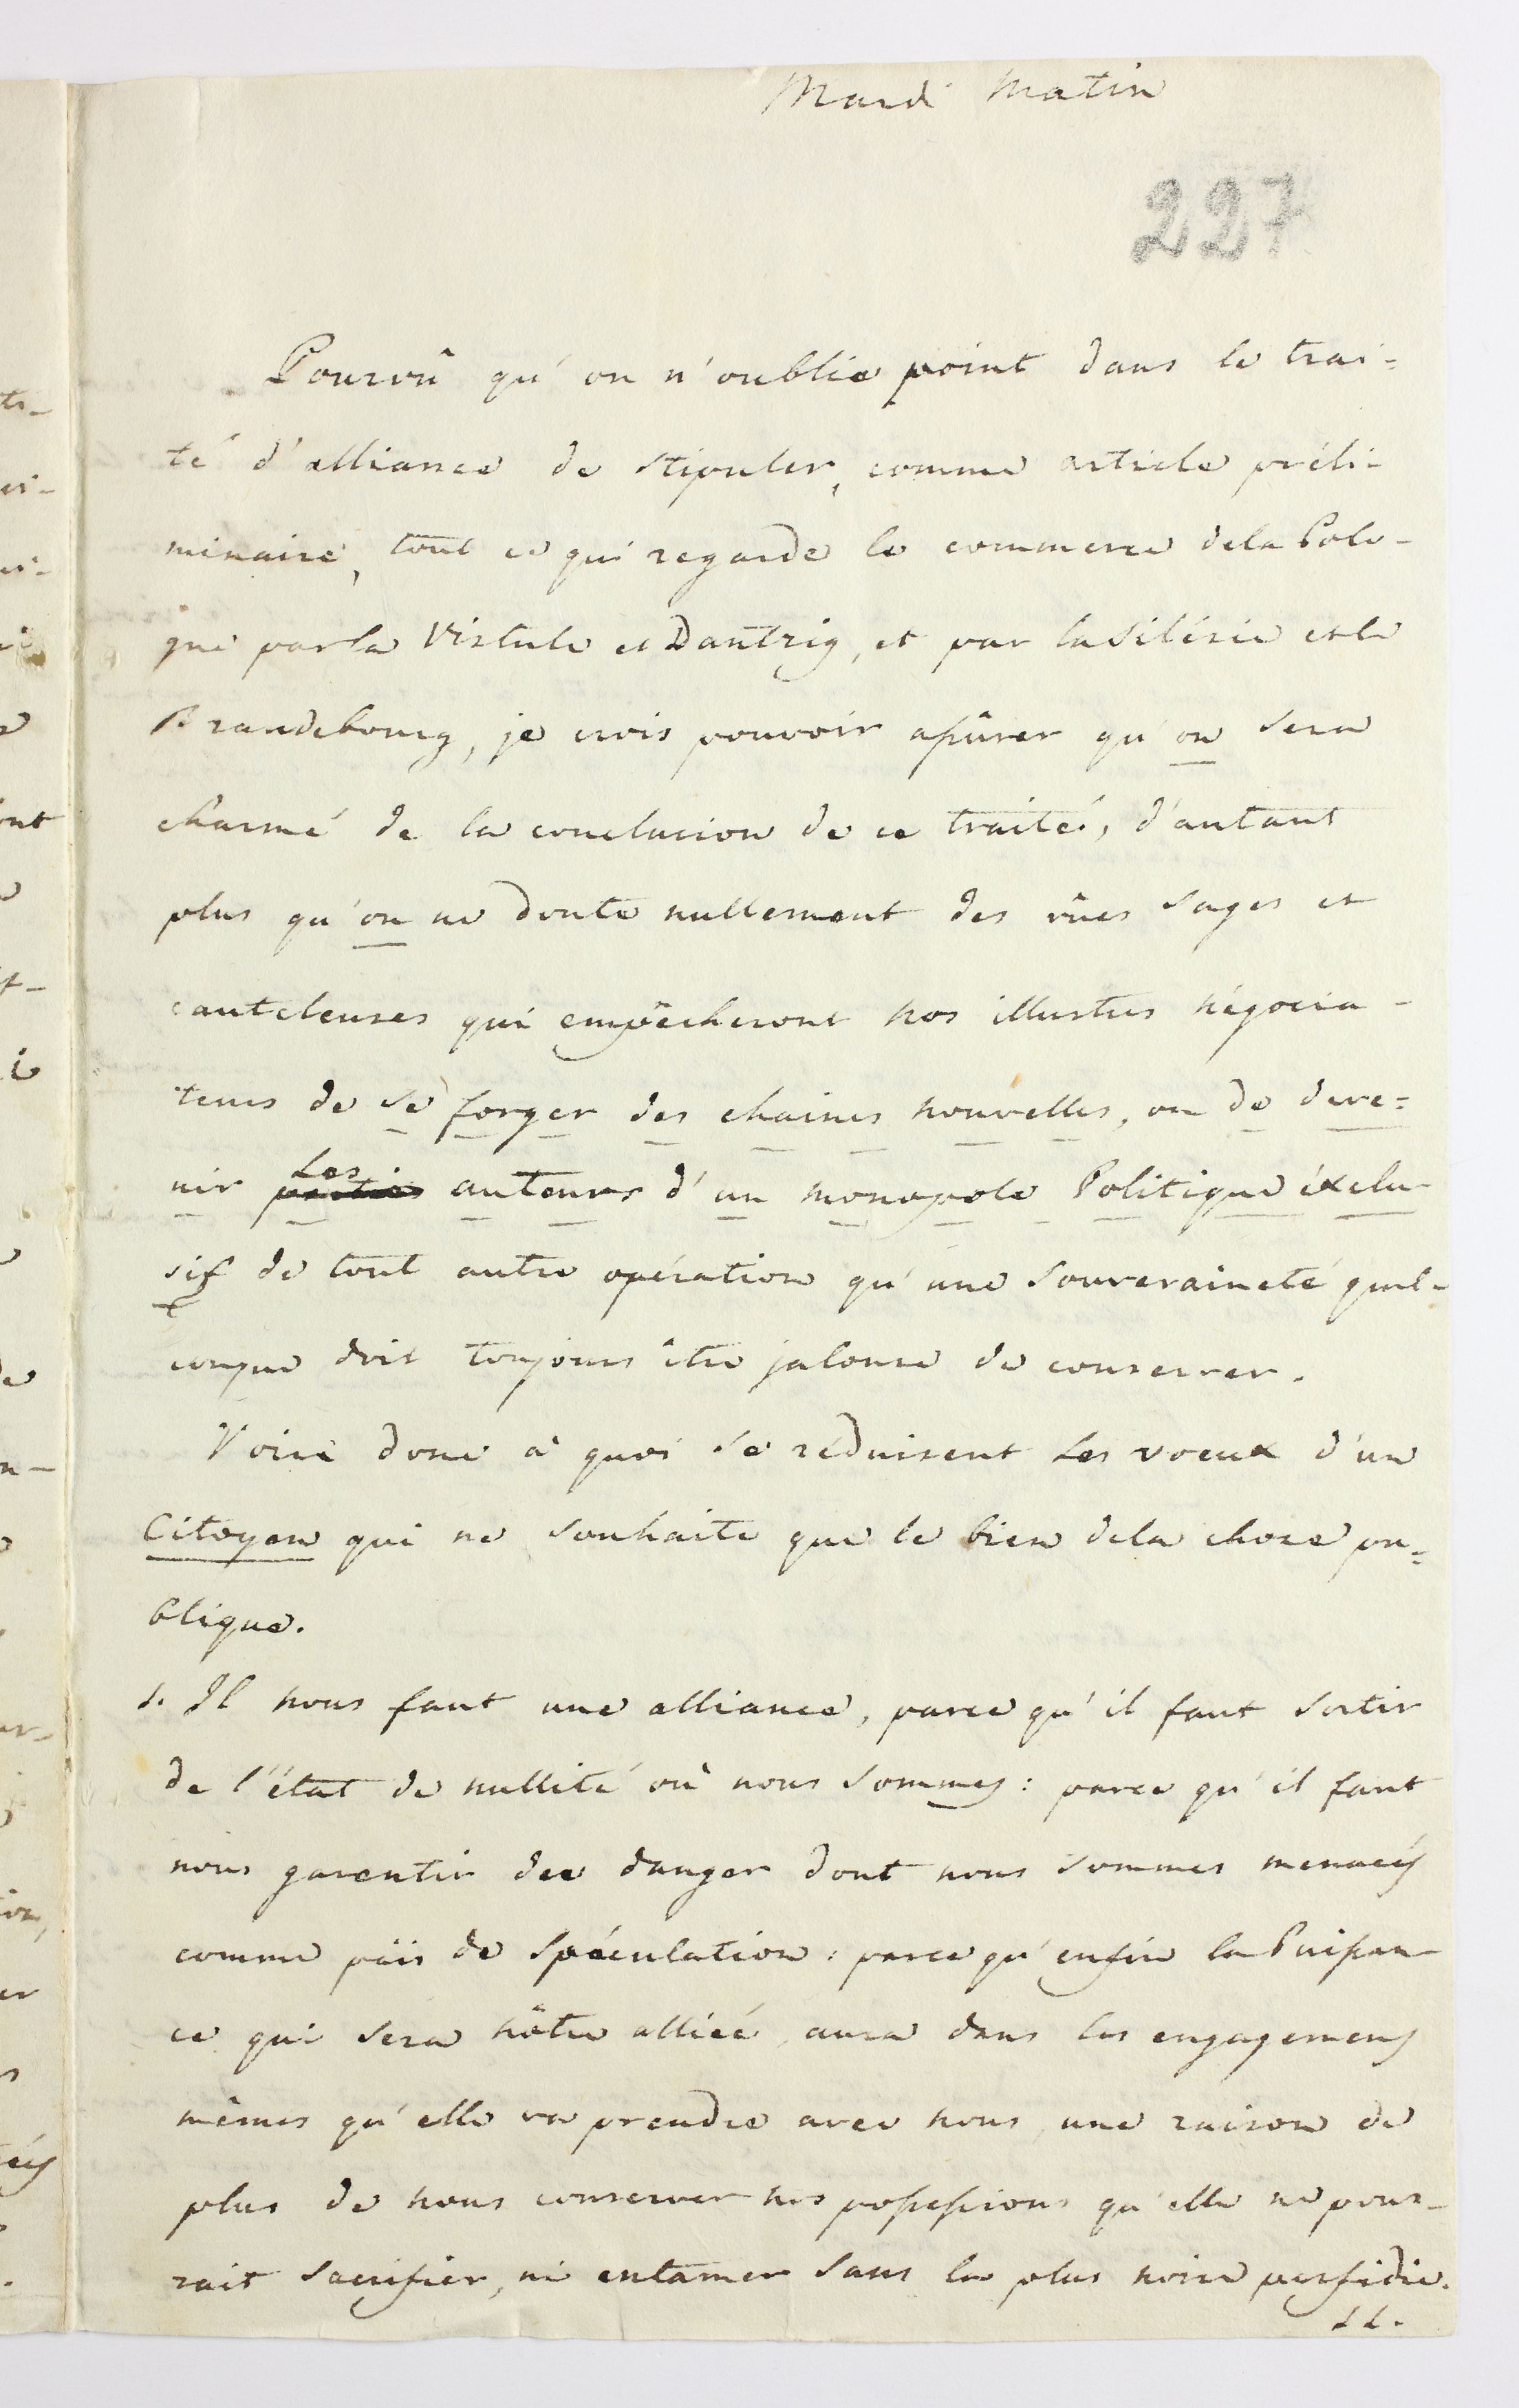 Mardi Matin
227
Pourvû qu'on n'oublie point dans le trai=
té d'alliance de stipuler, comme article préli-
minaire, tout ce qui regarde le commerce dela Polo-
gne par la Vistule et Dantzig, et par la Silésie et le
Brandebourg, je crois pouvoir assûrer qu'on sera
charmé de la conclusion de ce traité, d'autant
plus qu'on ne doute nullement des vûes sages et
cauteleuses qui empêcheront nos illustres négocia-
teurs de se forger des chaines nouvelles, ou de deve=
nir les auteurs d'un monopole Politique éxclu-
sif de tout autre opération qu'une souveraineté quel-
conque doit toujours être jalouse de conserver.
Voici donc à quoi se réduisent les voeux d'un
Citoyen qui ne souhaite que le bien dela chose pu=
blique.
1. Il nous faut une alliance, parce qu'il faut sortir
de l'état de nullité où nous sommes: parce qu'il faut
nous garentir de danger dont nous sommes menacés
comme païs de spéculation: parce qu'enfin la Puissan-
ce qui sera nôtre alliée, aura dans les engagemens
mêmes qu'elle va prendre avec nous une raison de
plus de nous conserver nos possessions qu'elle ne pour-
rait sacrifier, ni entamer sans la plus noire perfidie.